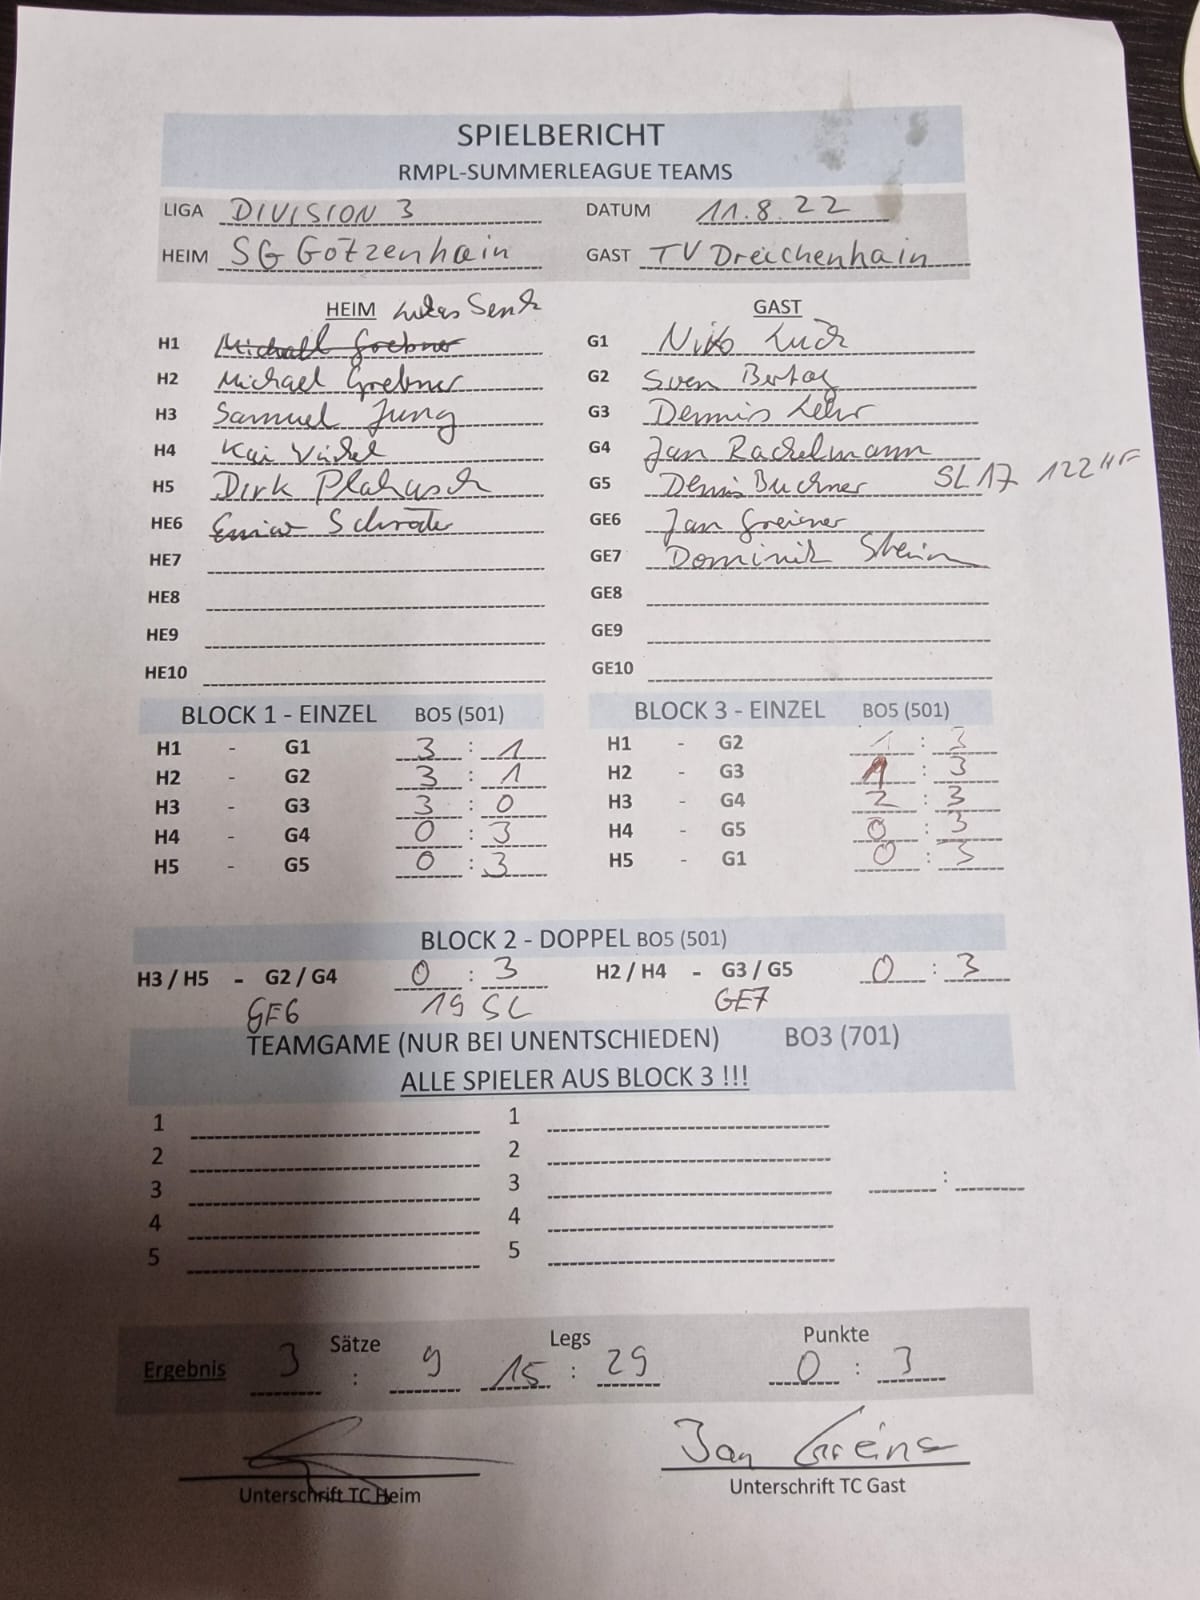 SPIELBERICHT
RMPL-SUMMERLEAGUE TEAMS
LIGA DIVISION 3 DATUM 11.8.22
HEIM SG Götzenhain GAST TV Dreieichenhain
HEIM Lukas Senk GAST
H1 Michael Grebner G1 Niko Luch
H2 Michael Grebner G2 Sven
H3 Samuel Jung G3 Dennis Lehr
H4 Kai G4 Jan Rachelmann
H5 Dirk G5 Denis Buchner SL 17 122 HF
HE6 Schröte GE6 Jan Greiner
HE7 GE7 Dominik Stein
HE8 GE8
HE9 GE9
HE10 GE10
BLOCK 1 - EINZEL BO5 (501) BLOCK 3 - EINZEL BO5 (501)
H1 - G1 3 : 1 H1 - G2 1 : 3
H2 - G2 3 : 1 H2 - G3 1 : 3
H3 - G3 3 : 0 H3 - G4 2 : 3
H4 - G4 0 : 3 H4 - G5 0 : 3
H5 - G5 0 : 3 H5 - G1 0 : 3
BLOCK 2 - DOPPEL BO5 (501)
H3 / H5 - G2 / G4 0 : 3 H2 / H4 - G3 / G5 0 : 3
GE6 19 SL GE7
TEAMGAME (NUR BEI UNENTSCHIEDEN) BO3 (701)
ALLE SPIELER AUS BLOCK 3 !!!
1 1
2 2
3 3 :
4 4
5 5
Sätze Legs Punkte
Ergebnis 3 : 9 15 : 29 0 : 3
Jan Greiner
Unterschrift TC Heim Unterschrift TC Gast